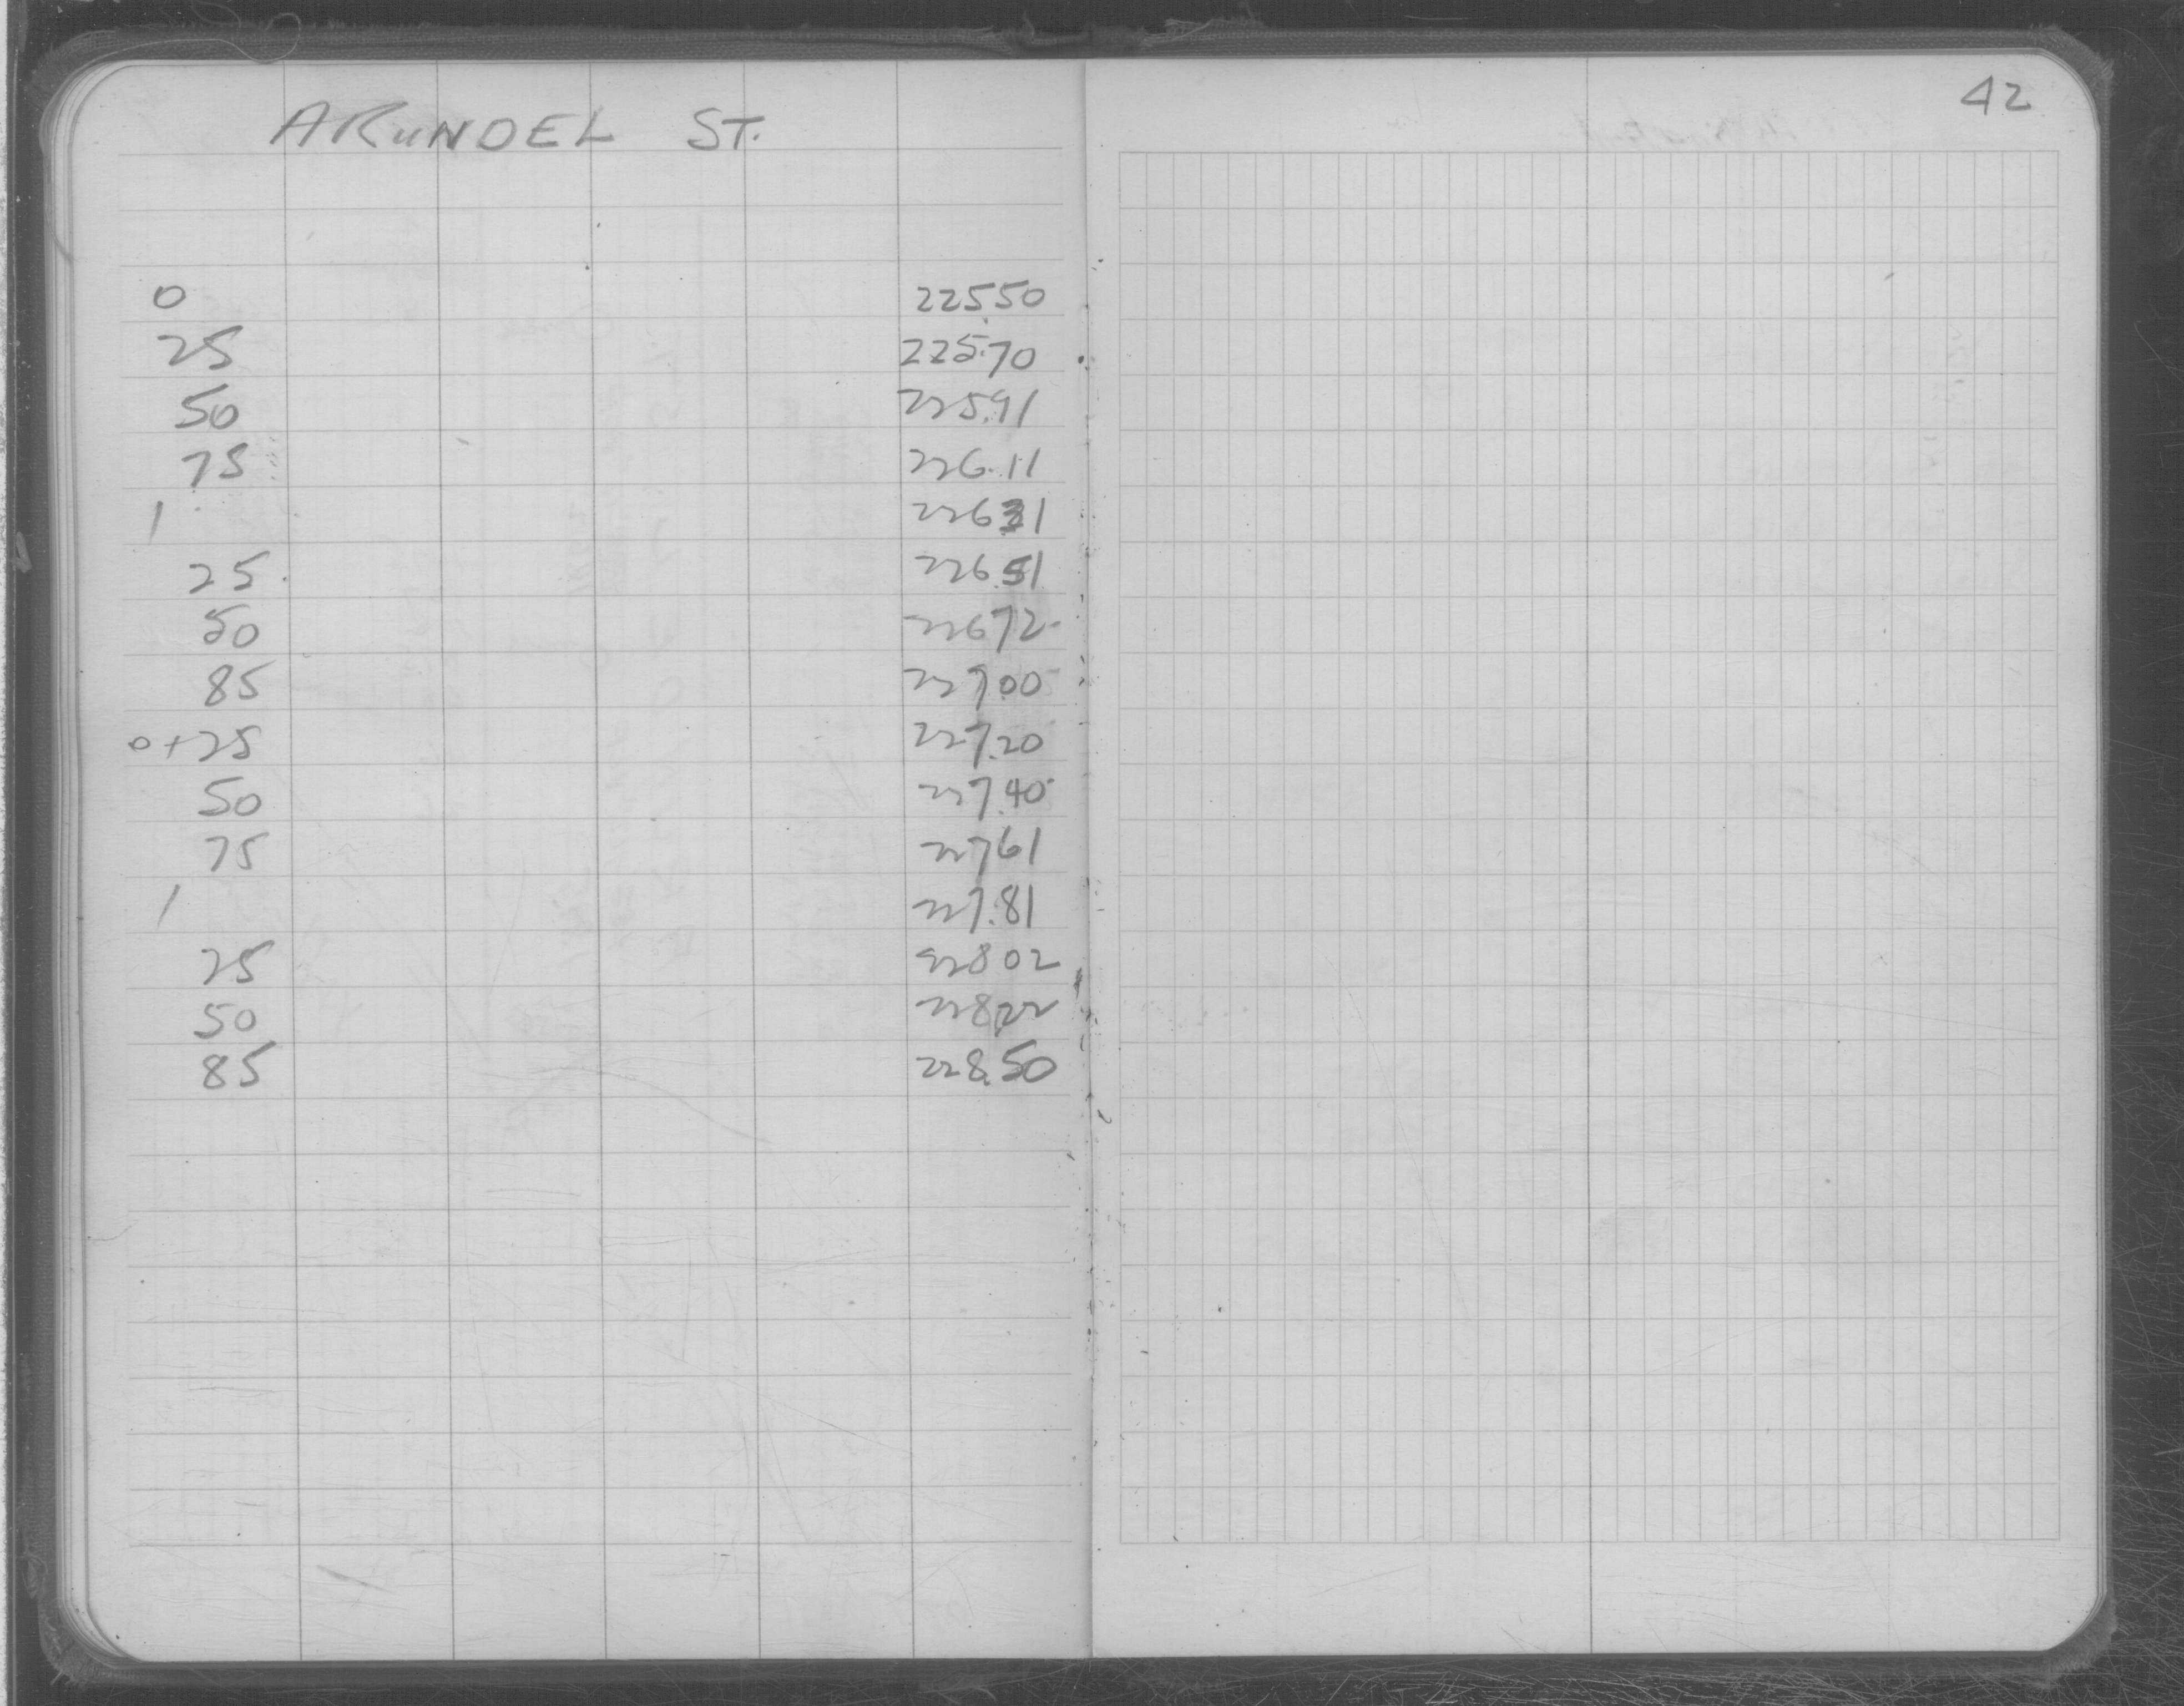 42
ARUNDEL ST.
0 225.50
25 225.70
50 225.91
75 226.11
1 226.31
25 226.51
50 226.72
85 227.00
0+25 227.20
50 227.40
75 227.61
1 227.81
25 228.02
50 228.22
85 228.50